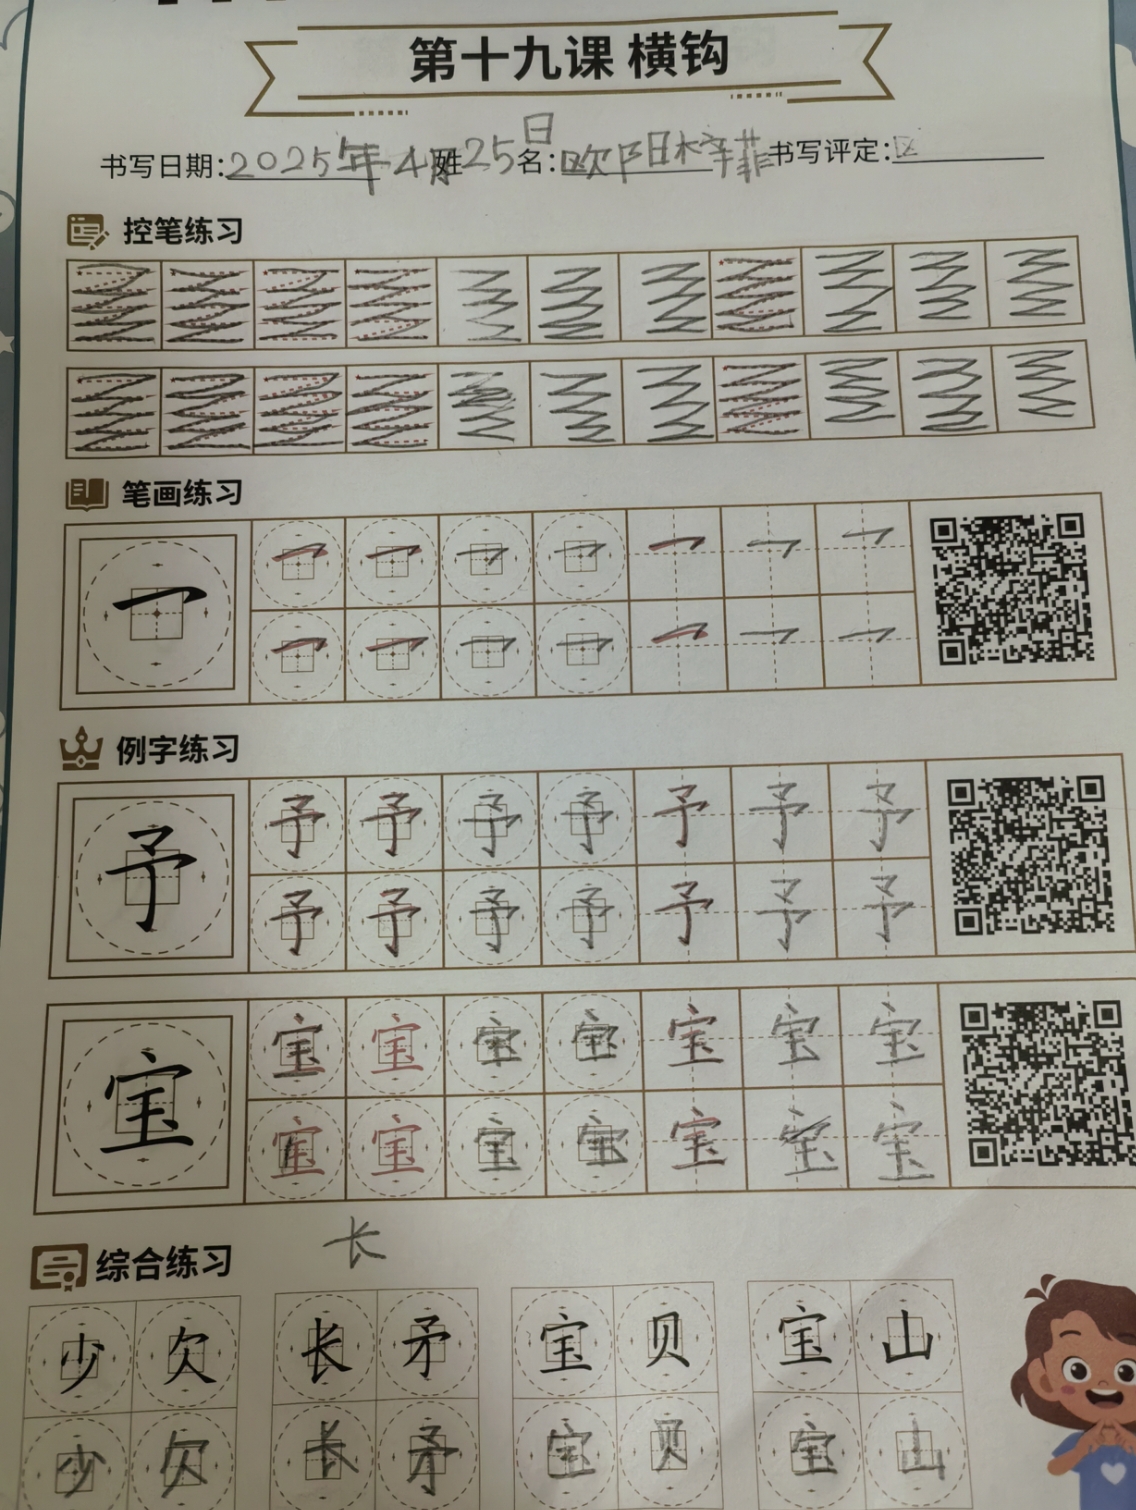 第十九课 横钩
书写日期：2025年4月25日 姓名：欧阳梓菲 书写评定：区
控笔练习
笔画练习
例字练习
予 予 予 予 予 予 予 予
予 予 予 予 予 予 予
宝 宝 宝 宝 宝 宝 宝 宝
宝 宝 宝 宝 宝 宝 宝
长
综合练习
少 欠 长 矛 宝 贝 宝 山
少 欠 长 矛 宝 贝 宝 山